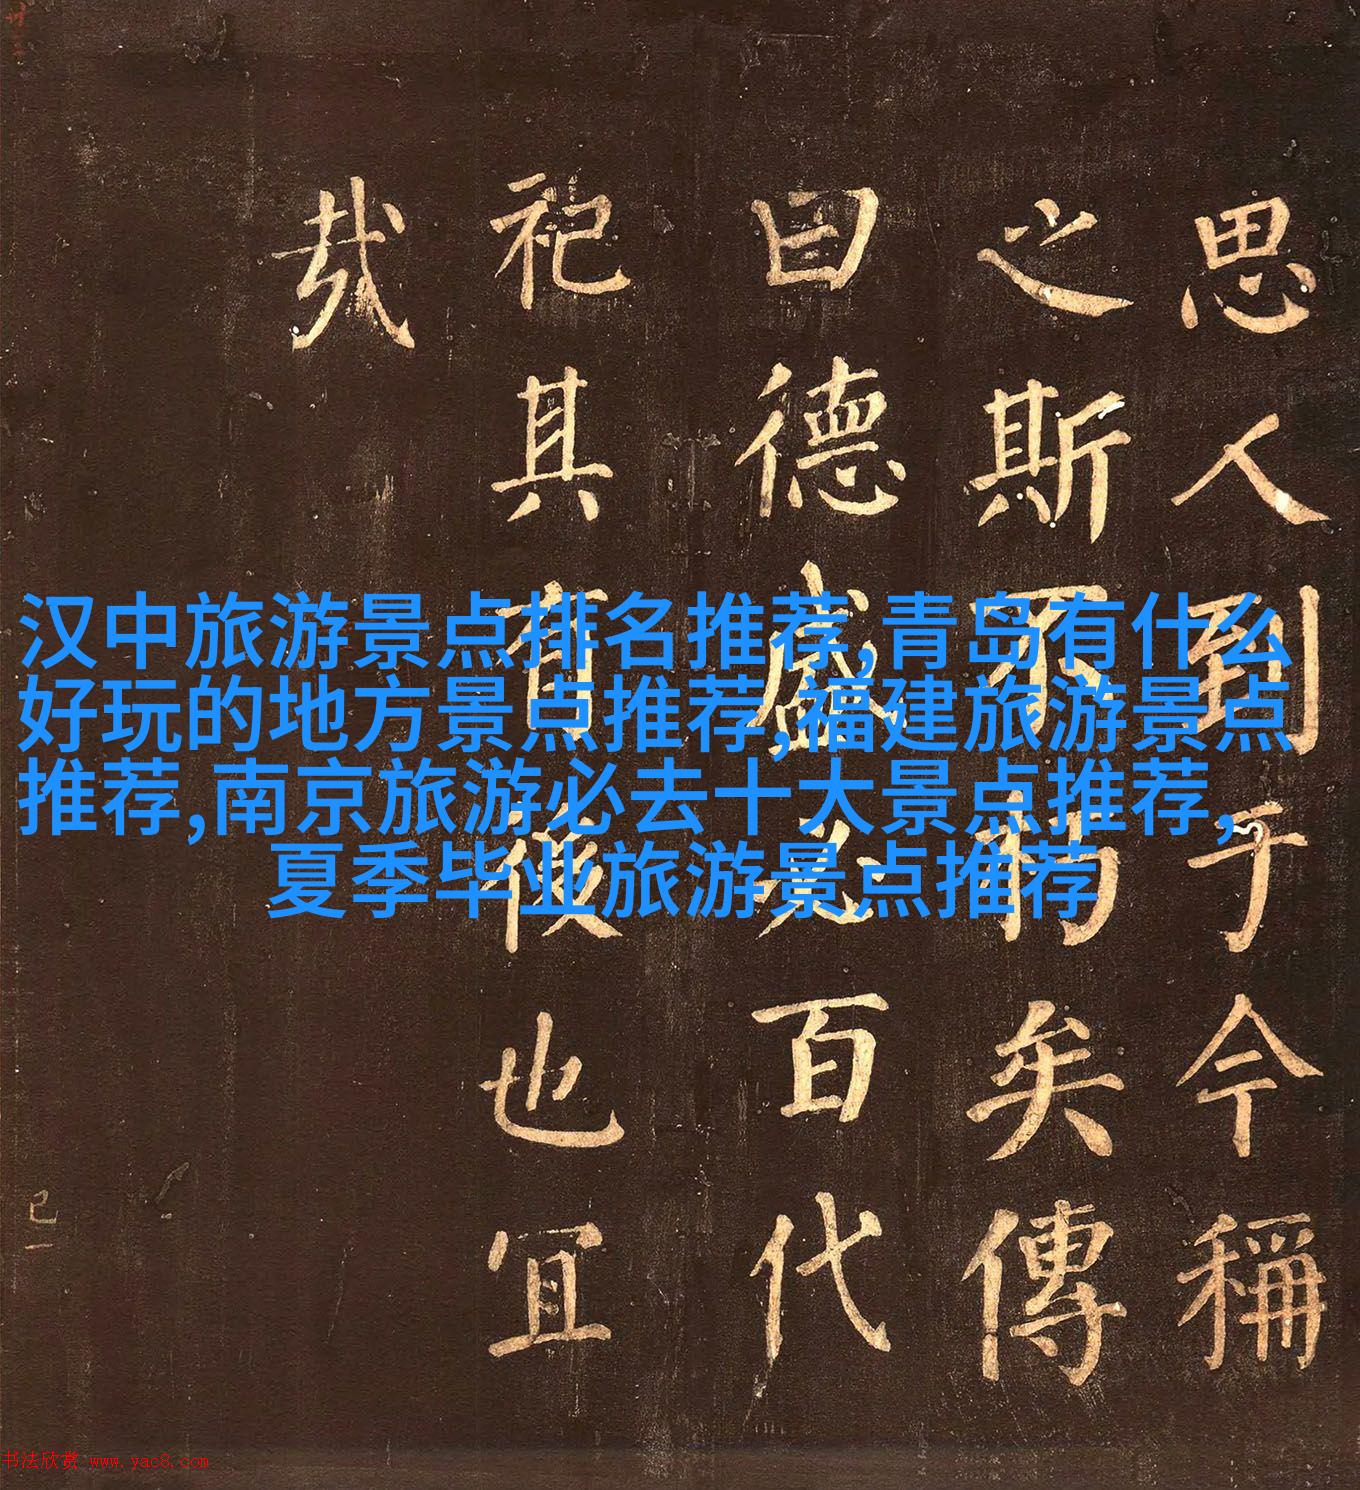 思人到于今稱
之斯不朽矣傳
曰德盛必百代
祀其有後也宜
哉
汉中旅游景点排名推荐,青岛有什么
好玩的地方景点推荐,福建旅游景点
推荐,南京旅游必去十大景点推荐,
夏季毕业旅游景点推荐
书法欣赏 www.yac8.com